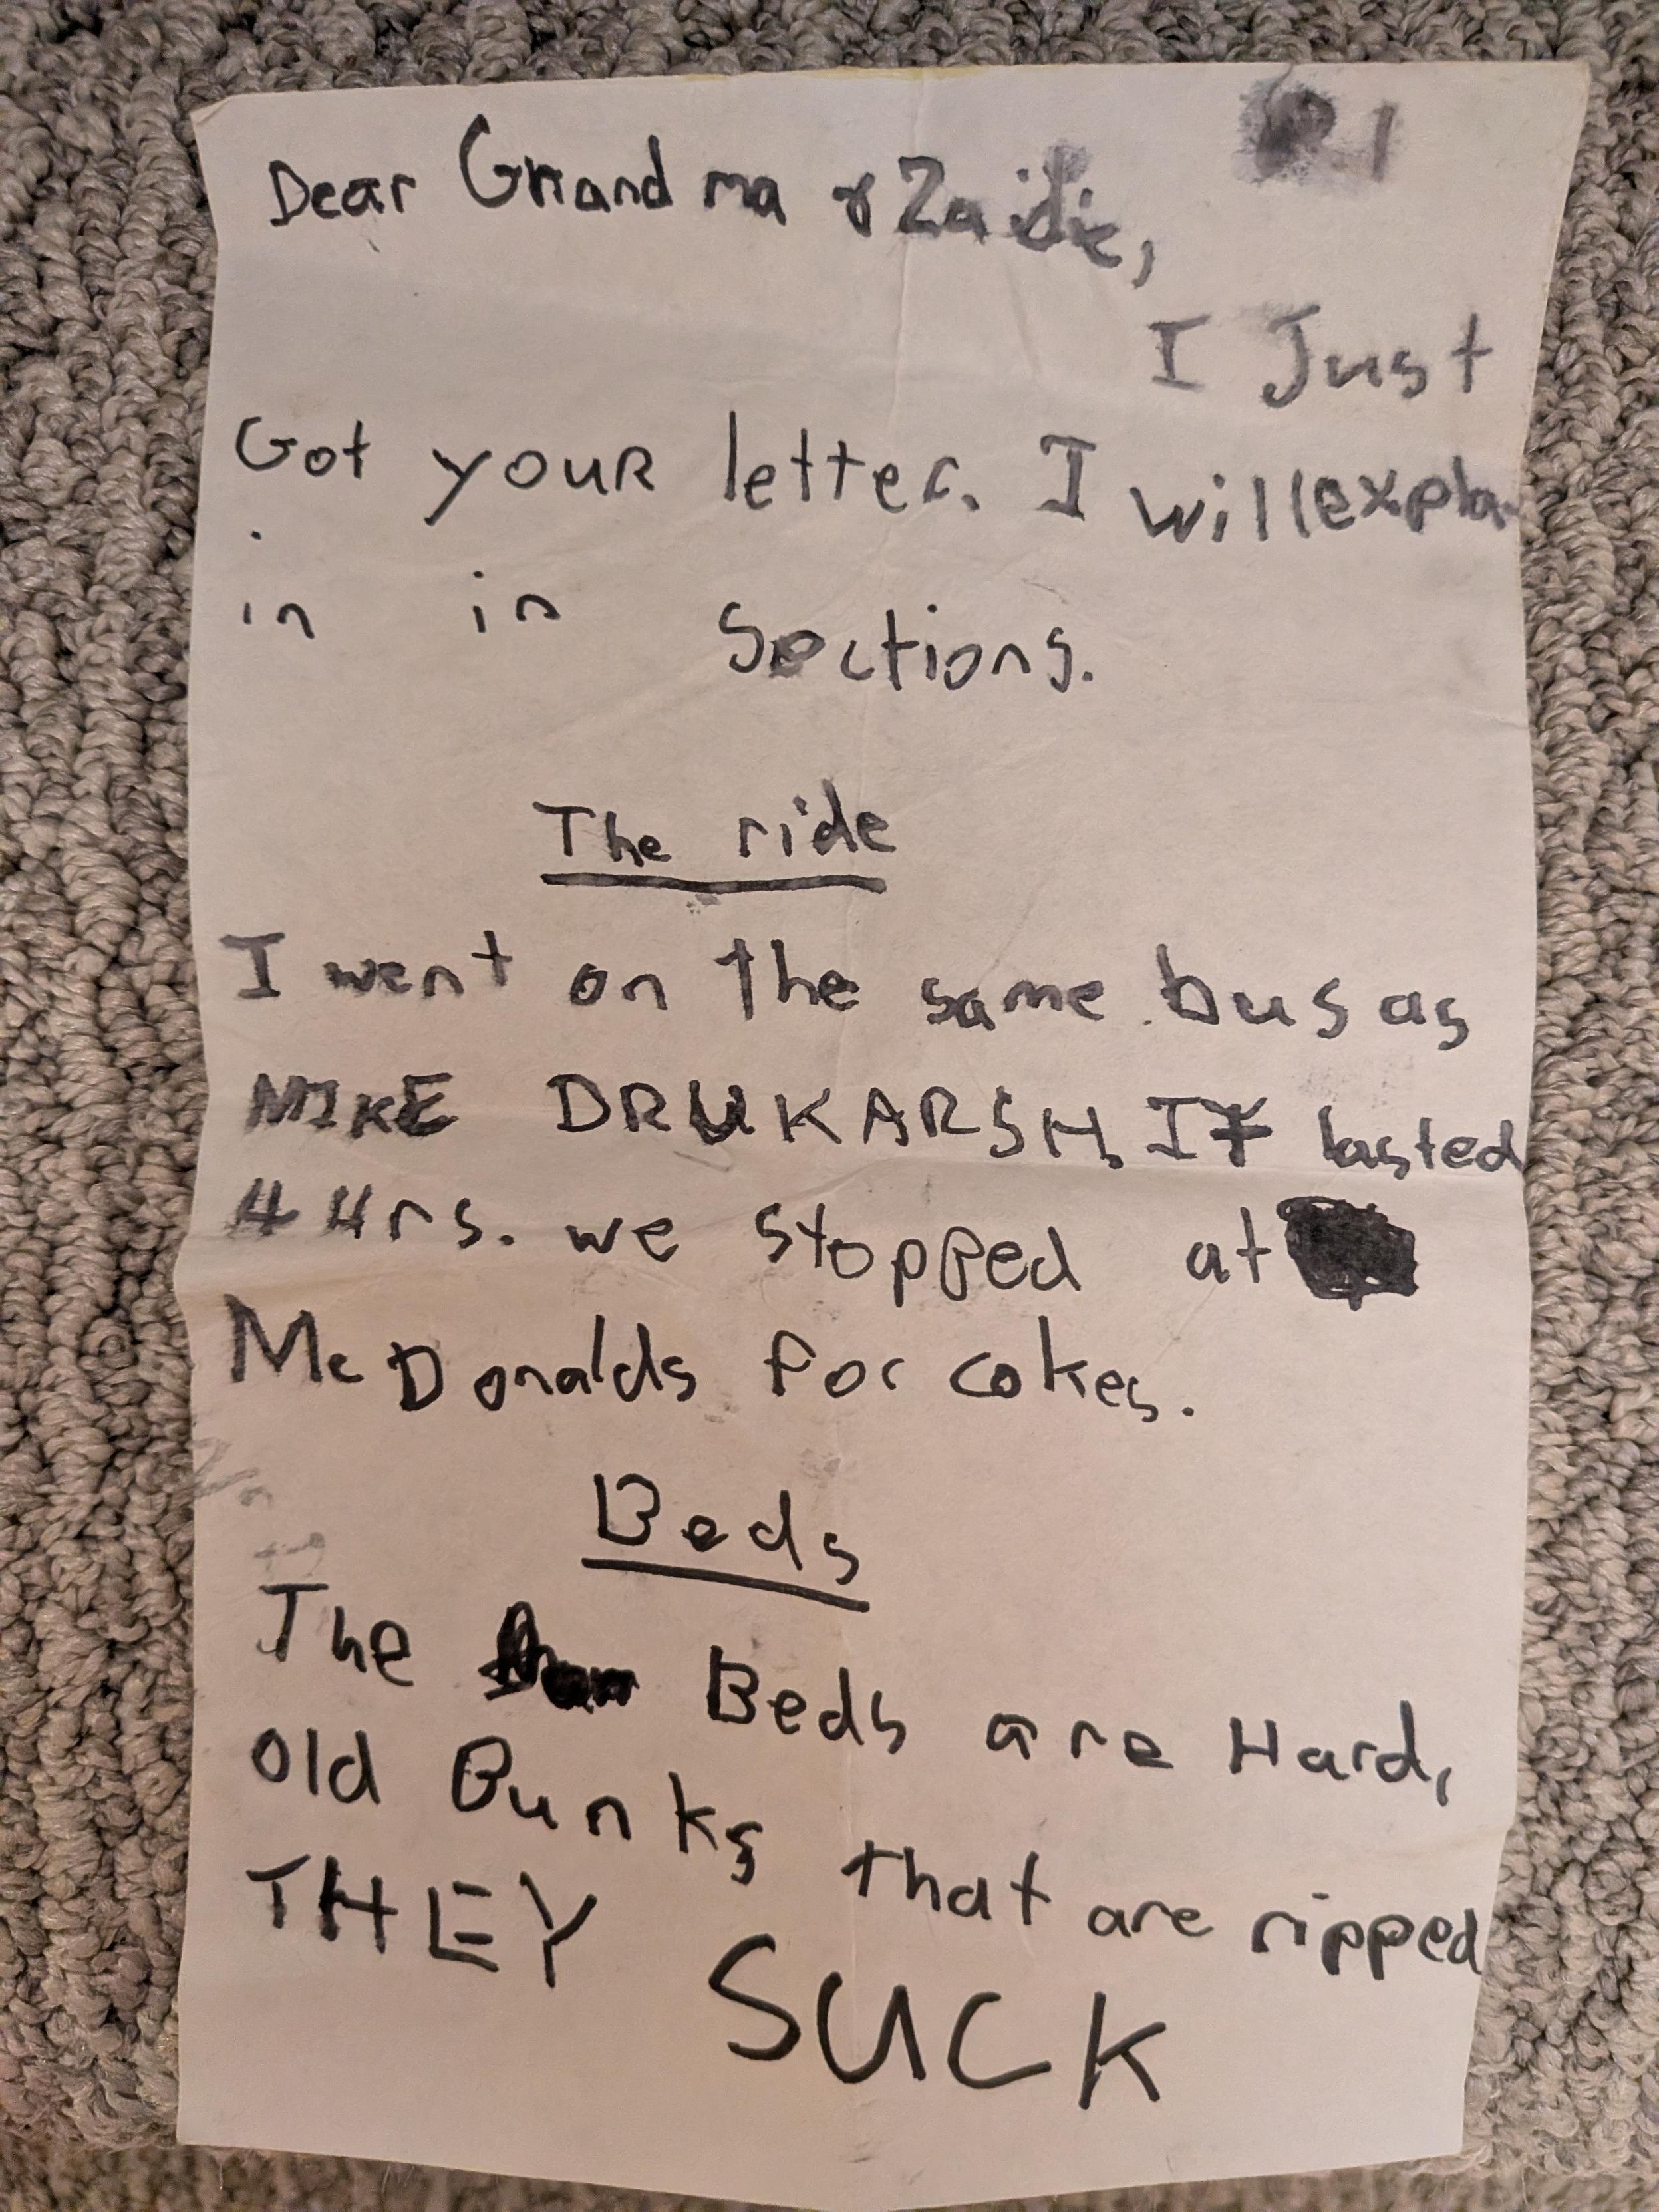 1
Dear Grandma & Zaidie,
I Just
Got YOUR letter. I will expla
in in Sections.
The ride
I went on the same bus as
MIKE DRUKARSH. IT lasted
4 Hrs. we stopped at
McDonalds for cokes.
Beds
The Beds are Hard,
old Bunks that are ripped
THEY SUCK